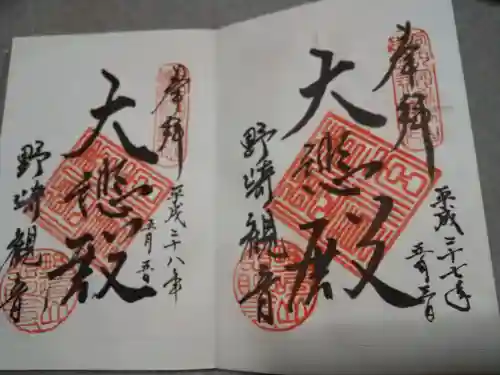 奉拝
平成二十七年
五月三日
大悲殿
野崎観音
奉拝
平成二十八年
五月五日
大悲殿
野崎観音